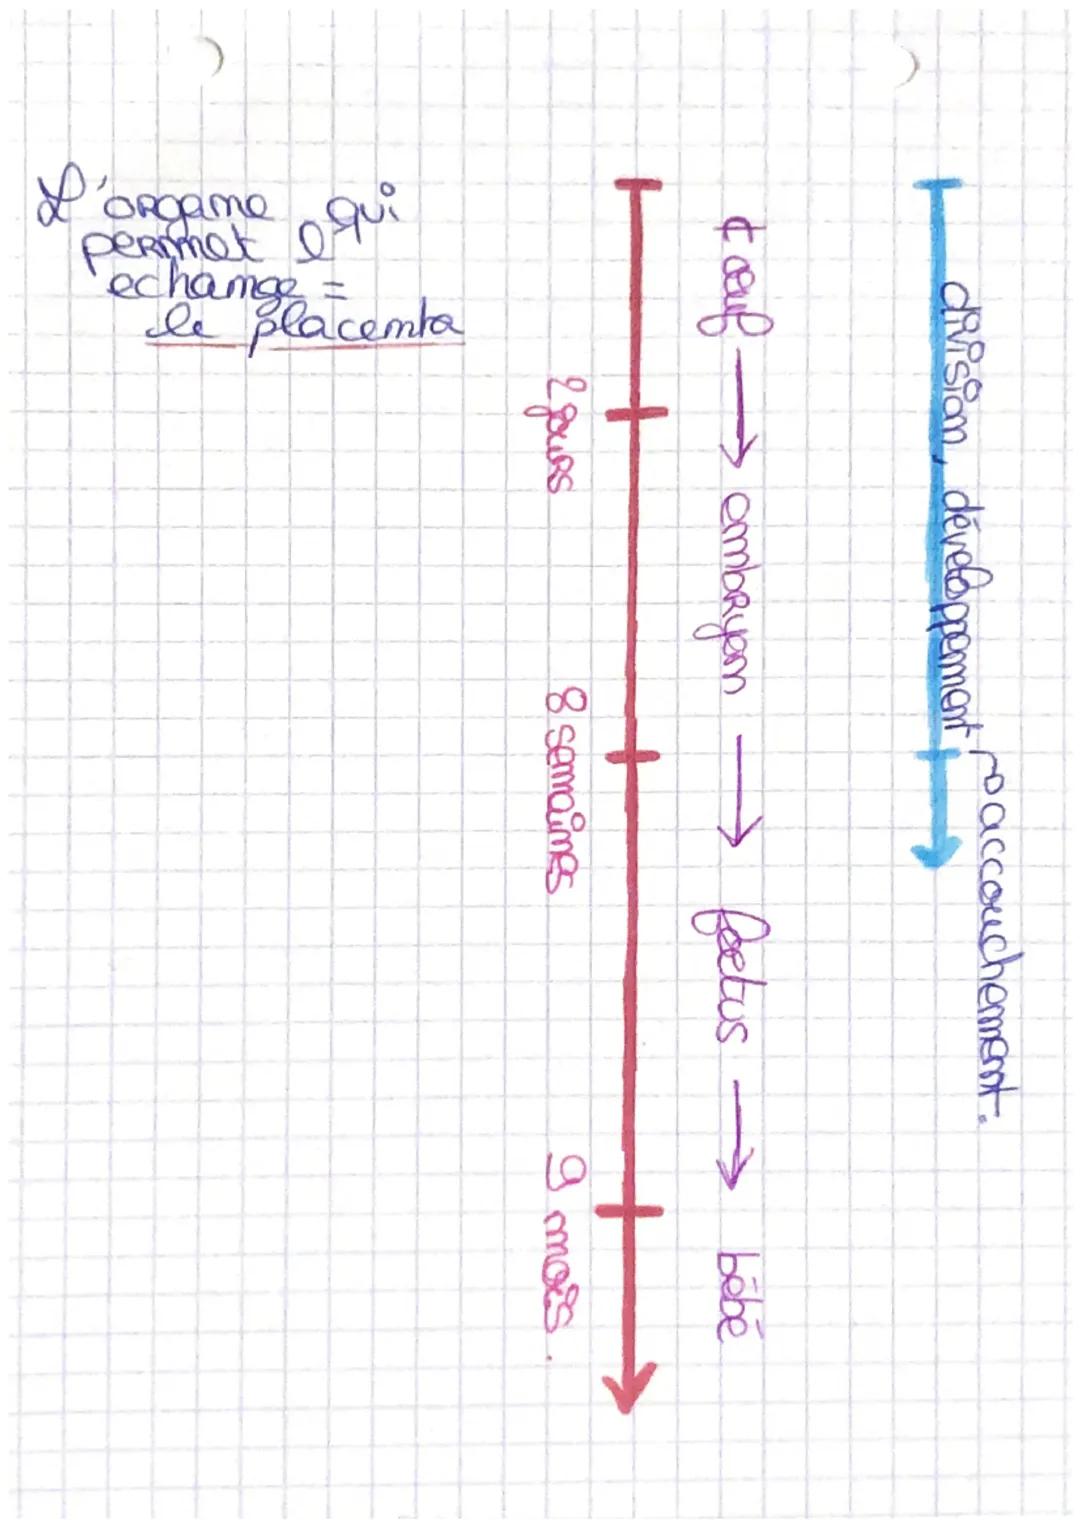 L'organe qui
permet l'
echange =
le placenta
division, développement
→ accouchement.
œuf → embryon → foetus → bébé
2 jours 8 semaines 9 mois.